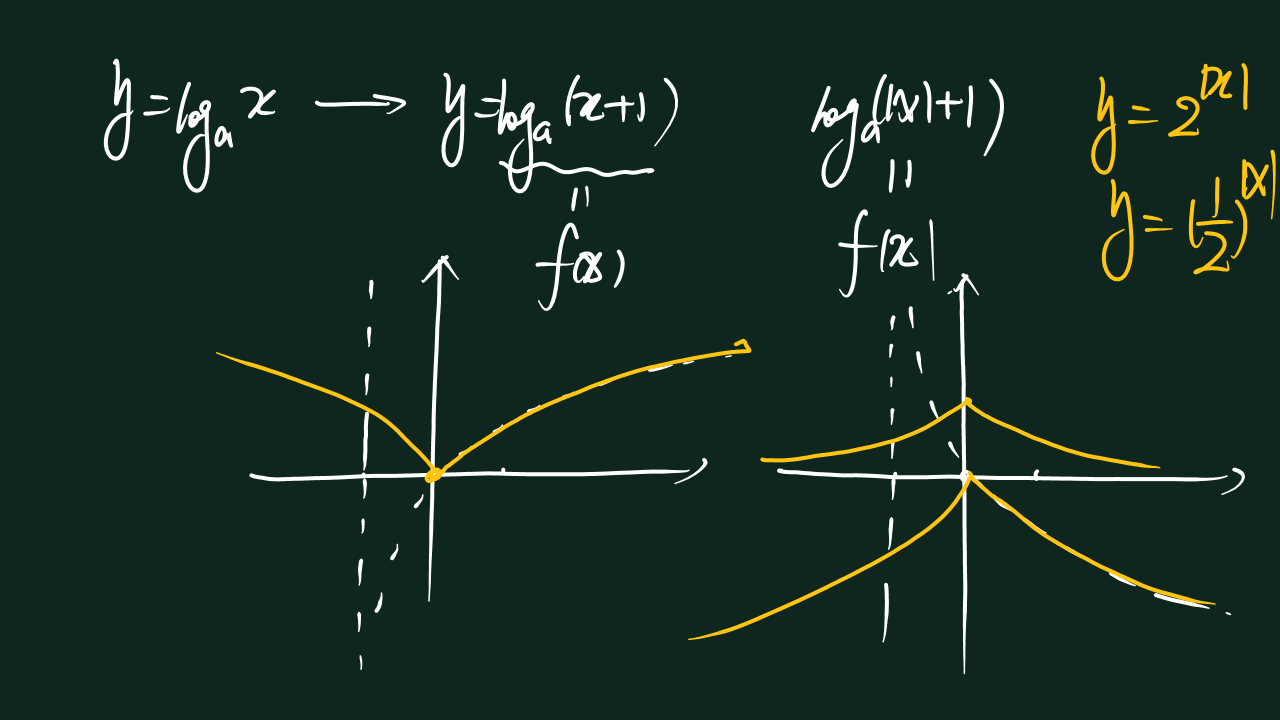 y=logₐx → y=logₐ(x+1)
=
f(x)
logₐ(|x|+1)
=
f|x|
y=2^|x|
y=(1/2)^|x|